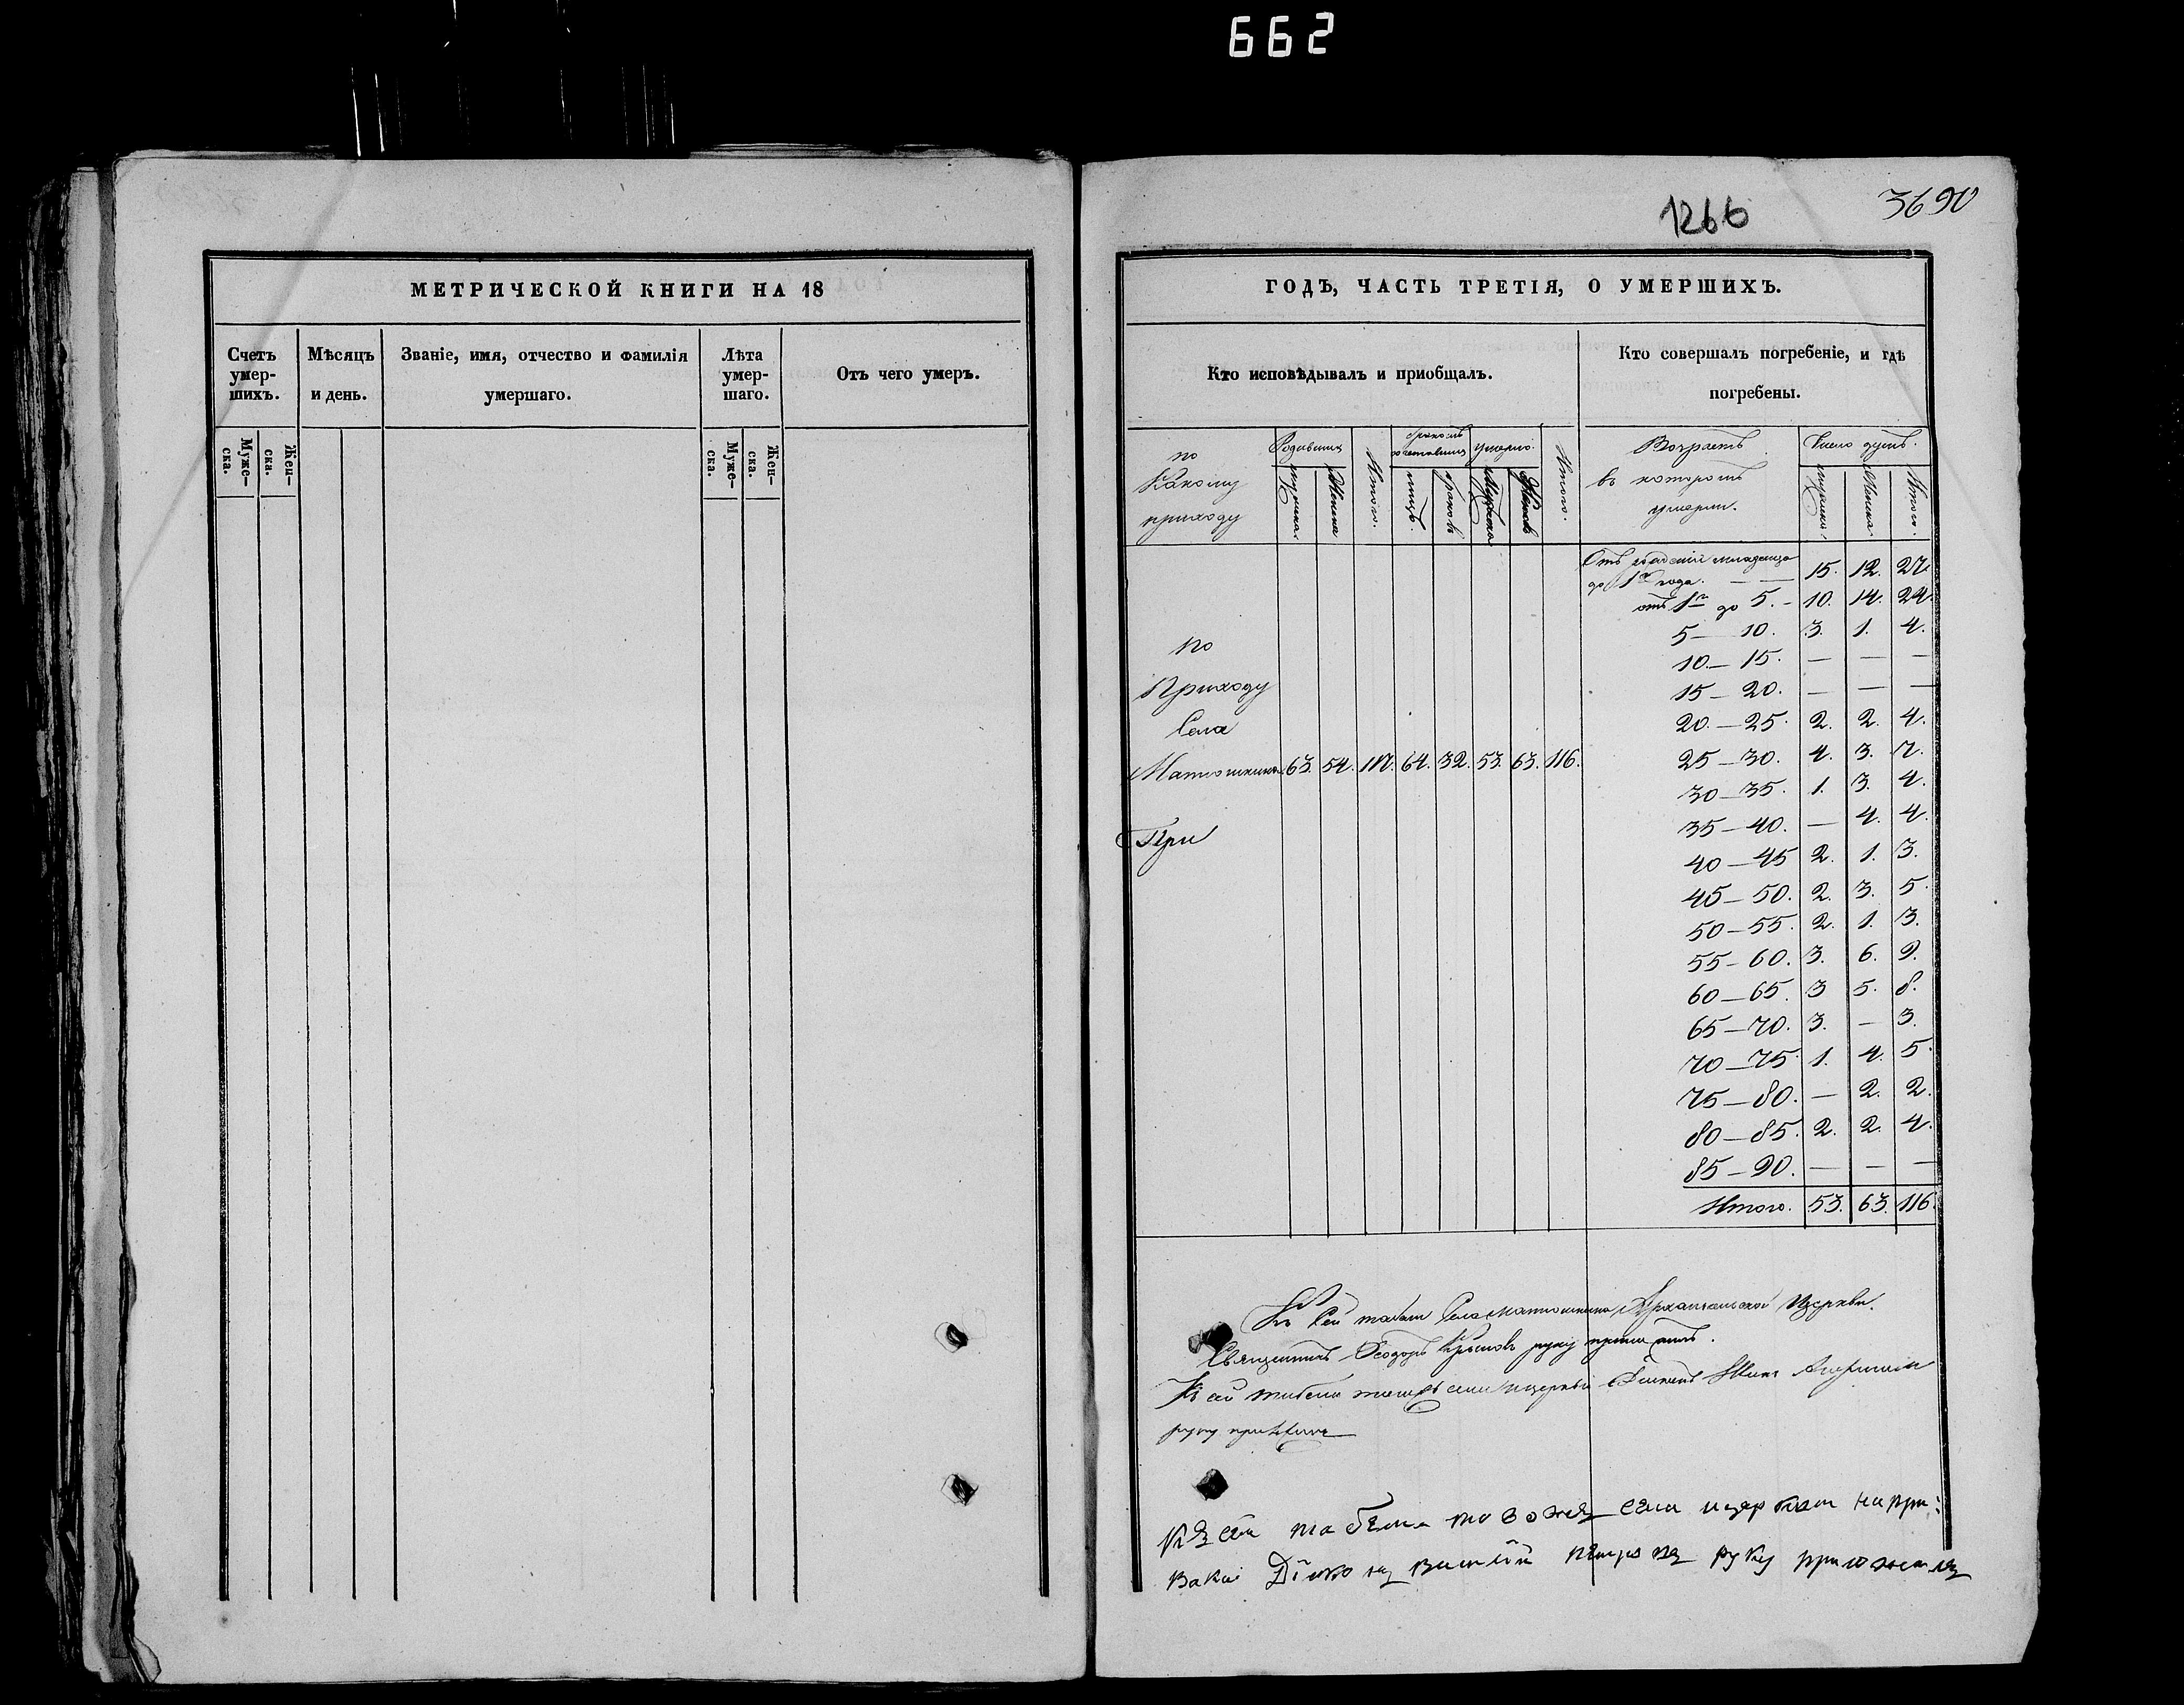 662
1266
3690
МЕТРИЧЕСКОЙ КНИГИ НА 18
Счетъ умер-шихъ.
Мѣсяцъ и день.
Званіе, имя, отчество и фамилія умершаго.
Лѣта умер-шаго.
Отъ чего умеръ.
Муже-ска.
Жен-ска.
Муже-ска.
Жен-ска.
ГОДЪ, ЧАСТЬ ТРЕТІЯ, О УМЕРШИХЪ.
Кто исповѣдывалъ и приобщалъ.
Кто совершалъ погребеніе, и гдѣ погребены.
по
Какому
приходу
Итого.
браковъ
Итого.
Возрастъ
въ которомъ
умерли.
Число душъ.
Итого.
Отъ младенца
до 1го года. — — 15. 12. 27.
отъ 1го до 5. – 10. 14. 24.
5 — 10. 3. 1. 4.
10 — 15. — — —
15 — 20. — — —
20 — 25. 2. 2. 4.
25 — 30. 4. 3. 7.
30 — 35. 1. 3. 4.
35 — 40. — 4. 4.
40 — 45 2. 1. 3.
45 — 50. 2. 3. 5.
50 — 55. 2. 1. 3.
55 — 60. 3. 6. 9.
60 — 65. 3 5. 8.
65 — 70. 3. — 3.
70 — 75. 1. 4. 5.
75 — 80. — 2. 2.
80 — 85. 2. 2. 4.
85 — 90. — — —
Итого. 53. 63. 116.
по
Приходу
Села
Матюшкина 63. 54. 117. 64. 32. 53. 63. 116.
При
Къ сей табели Села Матюшкина Архангельской Церкви.
Священникъ Ѳеодоръ руку приложилъ.
Къ сей табели тояжъ церкви
руку приложилъ
Къ сей табели тоѧ же церкви на при:
Петровъ руку приложилъ